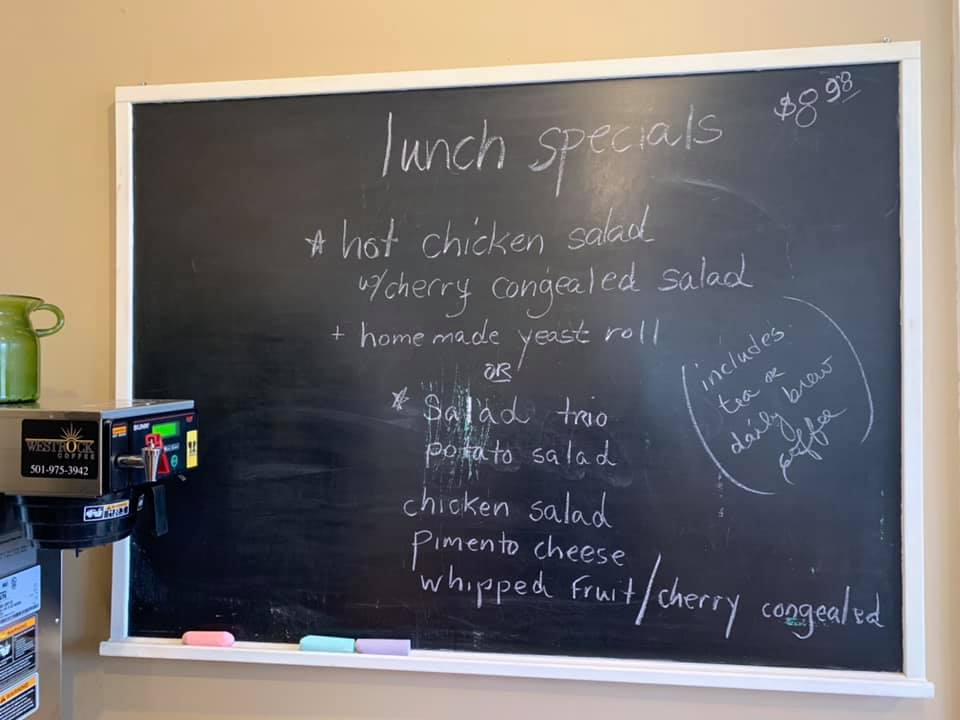 $8.98
lunch specials
* hot chicken salad
w/cherry congealed salad
+ homemade yeast roll
OR
* Salad trio
potato salad
chicken salad
pimento cheese
whipped fruit/cherry congealed
includes
tea or
daily brew
coffee
WESTROCK
COFFEE
501-975-3942
BUNN